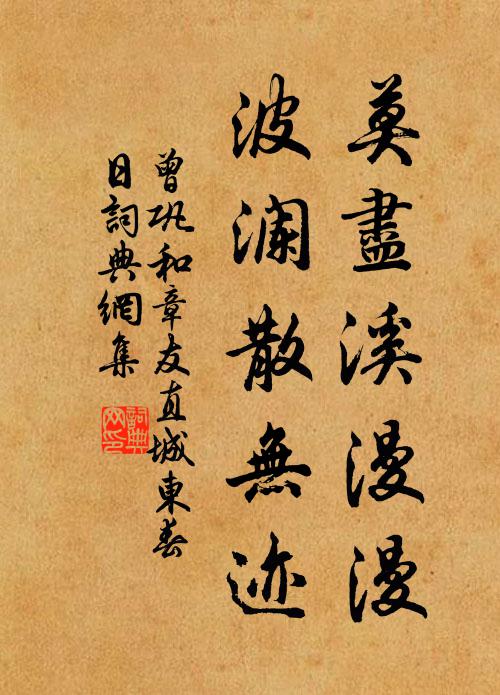 莫盡溪漫漫
波瀾散無迹
曾巩和章友直城東春
日詞典網集
詞典
网印